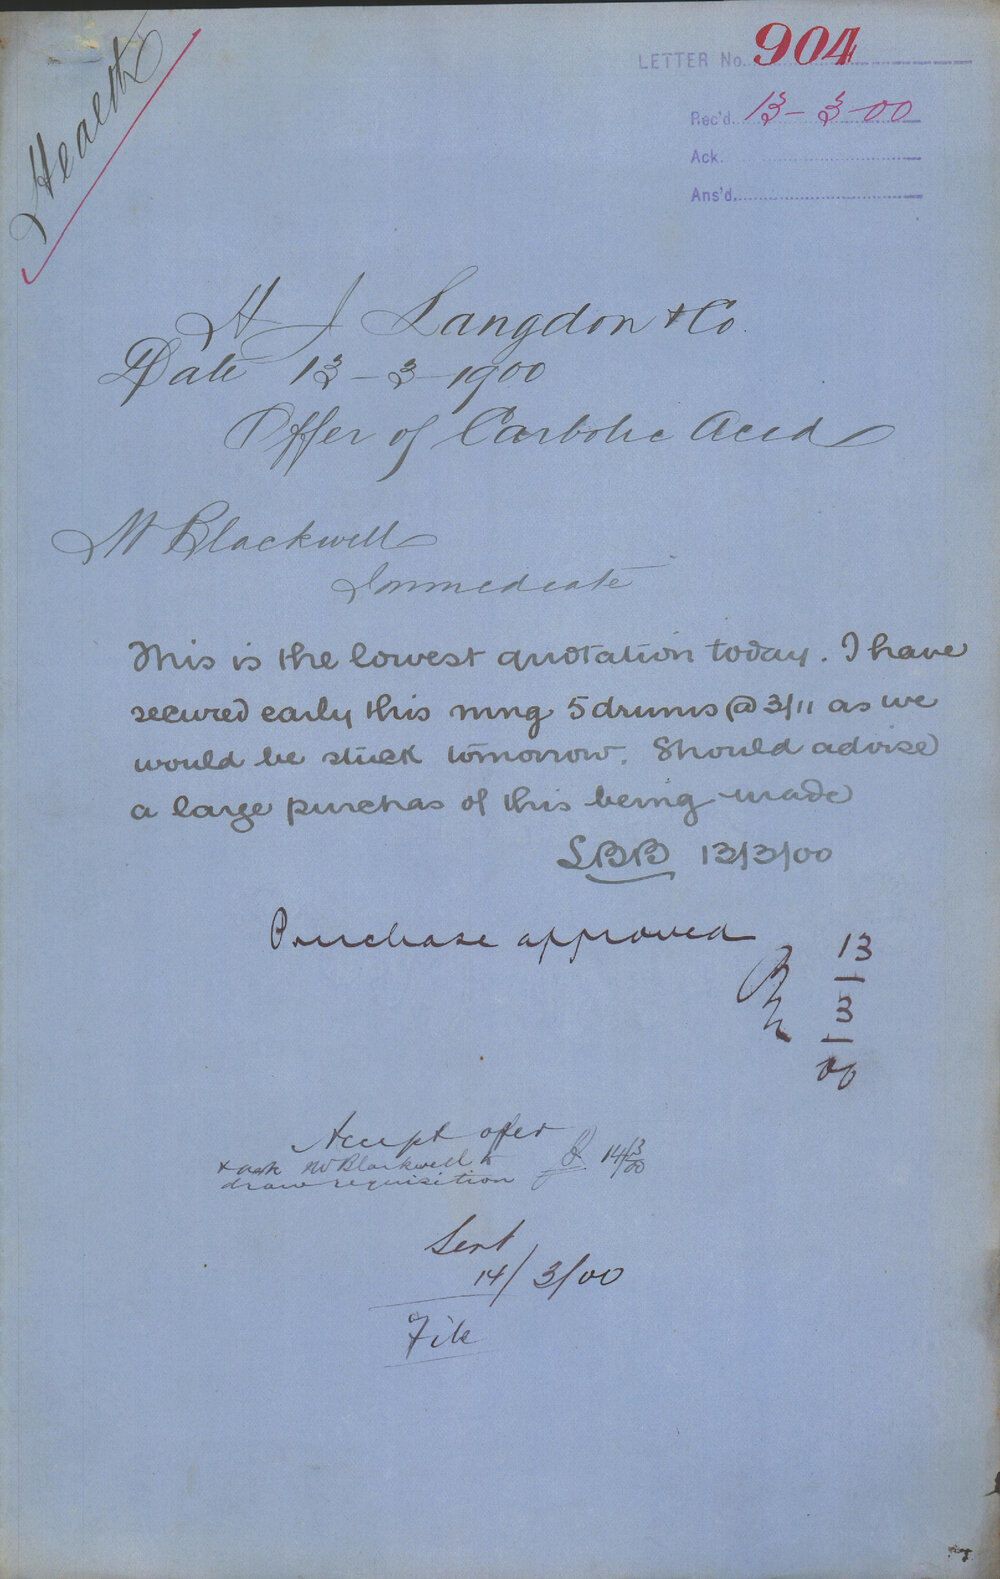 Health
LETTER No. 904
Rec'd. 13-3-00
Ack.
Ans'd.
H J Langdon & Co.
Date 13-3-1900
Offer of Carbolic Acid
Mr Blackwell
Immediate
This is the lowest quotation today. I have
secured early this mng 5 drums @ 3/11 as we
would be stuck tomorrow. Should advise
a large purchas of this being made
LBB 13/3/00
Purchase approved
13
3
00
Accept offer
+ ask Mr Blackwell to
draw requisition
14/3/00
Sent
14/3/00
File